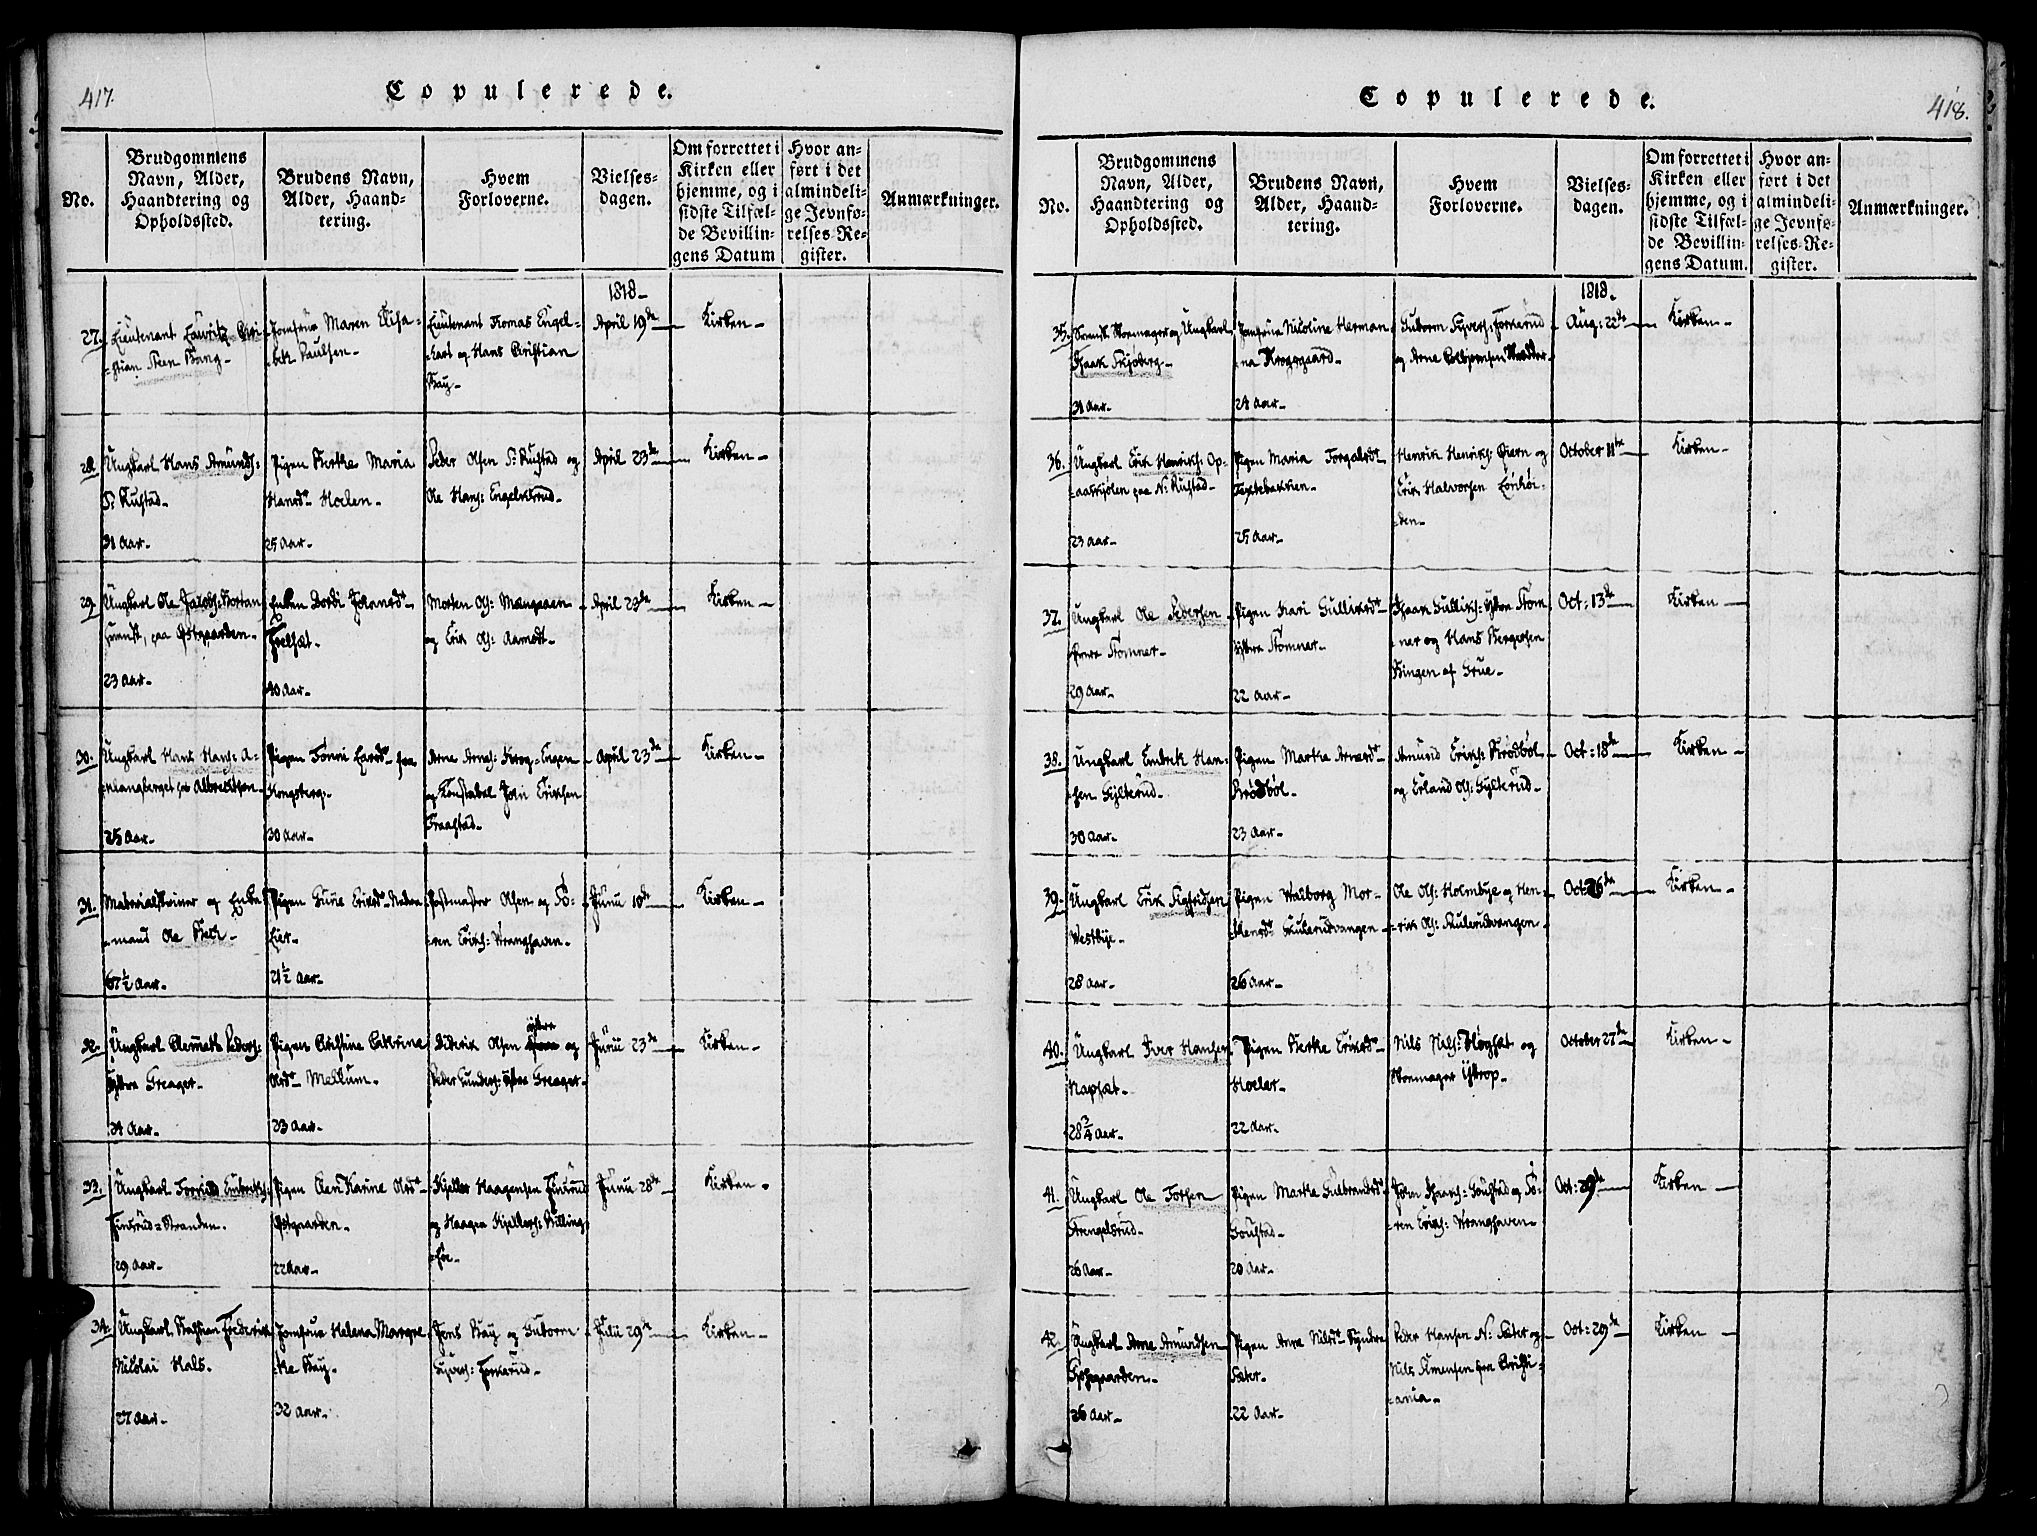 417.
Copulerede.
No.
Brudgommens
Navn, Alder,
Haandtering og
Opholdssted.
Brudens Navn,
Alder, Haand-
tering.
Hvem
Forloverne.
Vielses-
dagen.
Om forrettet i
Kirken eller
hjemme, og i
sidste Tilfæl-
de Bevillin-
gens Datum
Hvor an-
ført i det
almindeli-
ge Jevnfø-
relses-Re-
gister.
Anmærkninger.
1818-
27.
Lieutenant Lauritz Chri-
-stian Steen Bang-
Jomfrue Maren Elisa-
-beth Paulsen-
Lieutenant Thomas Engel-
-hart og Hans Christian
Bay-
April 19de
Kirken-
28.
Ungkarl Hans Amunds:
S: Rustad-
31 Aar-
Pigen Berthe Maria
Hansdt Hoelen-
25 Aar-
Peder Olsen S: Rustad og
Ole Hans: Engelsrud-
April 23de
Kirken-
29.
Ungkarl Ole Jacobs:
paa Østgaarden-
23 Aar-
Enken Bordi Johansdt
40 Aar-
Morten Ols: Mangaaen
og Erik Ols: Aamodt-
April 23de
Kirken-
30.
Ungkarl Hans Hans: A-
25 Aar-
Pigen Tonni fra
Kongsberg-
30 Aar-
Arne Arnes: Krog-Engen
og Konstabel John Erichsen
Fraastad-
April 23de
Kirken-
31.
Materialskriver og Enke-
-mand Ole
67½ Aar-
Pigen Gune Eriksdt Nedre
Eier-
21½ Aar-
Postmester Olsen og Sö-
-ren Eriks: Vranghaven-
Junii 10de
Kirken-
32.
Ungkarl Clemmet Peders:
Ystre Greager-
34 Aar-
Pigen Christine Cathrine
Olsdt Mellum-
23 Aar-
Diderik Olsen ystre og
Peder Gunders: Ystre Greager-
Junii 23de
Kirken-
33.
Ungkarl Embriks:
Finsrud-Stranden.
29 Aar-
Pigen Olen Karine Olsdt
Østgaarden-
22 Aar-
Kjeller Haagensen Finsrud
og Haagen Kjellers: Billing-
-söe-
Junii 28de
Kirken-
34.
Ungkarl Bastian Frederik
Nicolai Hals.
27 Aar-
Jomfrue Helena Margre-
-the Bay-
32 Aar-
Jens Bay og Guttorm
Syvers: Torkerud-
Julii 29de
Kirken-
418.
Copulerede.
No.
Brudgommens
Navn, Alder,
Haandtering og
Opholdssted.
Brudens Navn,
Alder, Haand-
tering.
Hvem
Forloverne.
Vielses-
dagen.
Om forrettet i
Kirken eller
hjemme, og i
sidste Tilfæl-
de Bevillin-
gens Datum.
Hvor an-
ført i det
almindeli-
ge Jevnfø-
relses-Re-
gister.
Anmærkninger.
1818.
35.
Svensk Skomager og Ungkarl
Isaak Skjöberg-
31 Aar-
Jomfrue Nicoline Herman-
-na Krogsgaard-
24 Aar-
Guttorm Syvers: Torkerud
og Arne Colbjørnsen
Aug: 22de
Kirken-
36.
Ungkarl Erik Henriks: Op-
-aaskjölen paa N: Rustad-
23 Aar-
Pigen Maria Torgalsdt
25 Aar-
Henrik Henriks: Øiern og
Erik Halvorsen Lönhöi-
-den-
October 11te
Kirken-
37.
Ungkarl Ole Pedersen
Stomner-
29 Aar-
Pigen Kari Gulliksdt
Ystre Stomner-
22 Aar-
Isaak Gulliks: Ystre Stom-
-ner og Hans Bergersen
Bingen af Grue-
Oct: 13de
Kirken-
38.
Ungkarl Embrik Han-
-sen Gylterud-
30 Aar-
Pigen Marthe Arnesdt
Brödböl-
23 Aar-
Amund Eriks: Brödböl
og Erland Ols: Gylterud-
Oct: 18de
Kirken-
39.
Ungkarl Erik Sigfridsen
Westbye-
28 Aar-
Pigen Walborg Mor-
-tensdt Skulerudvangen-
26 Aar-
Ole Ols: Holmbye og Hen-
-rik Ols: Skulerudvangen-
Oct: 26de
Kirken-
40.
Ungkarl Iver Hansen
Napset-
28¾ Aar-
Pigen Berthe Eriksdt
Hoeler-
22 Aar-
Nils Nils: Högset og
Skomager Ystrop-
October 27de
Kirken-
41.
Ungkarl Ole Tossen
Strengelsrud-
26 Aar-
Pigen Marthe Gulbrandsdt
Goustad-
20 Aar-
John Isaks: Goustad og Sö-
-ren Eriks: Vranghaven-
Oct: 29de
Kirken-
42.
Ungkarl Arne Amundsen
26 Aar-
Pigen Anne Nilsdt Syndre
Sæter-
22 Aar-
Peder Hansen N: Sæter og
Nils Simensen fra Christi-
-ania-
Oct: 29de
Kirken-